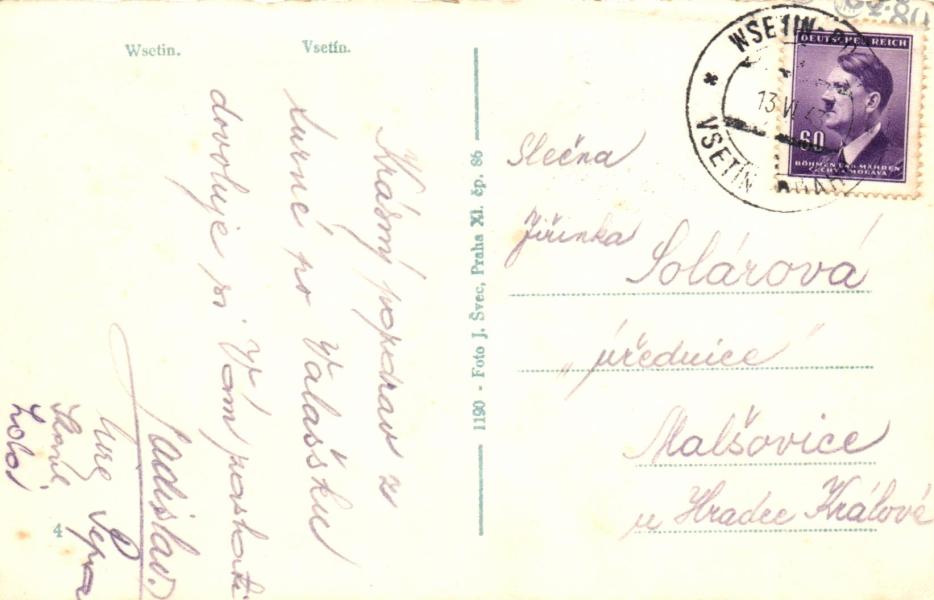 Wsetin.
Vsetín.
Krásný pozdrav z
turné po Valašsku
dovoluje si Vám poslati
Ladislav.
Jura Pepa
1190 - Foto J. Švec, Praha XI. čp. 86
4
WSETIN
VSETÍN
13 VI
DEUTSCHES REICH
60
BÖHMEN UND MÄHREN
ČECHY A MORAVA
Slečna
Jiřinka
Solárová
"úřednice"
Malšovice
u Hradce Králové